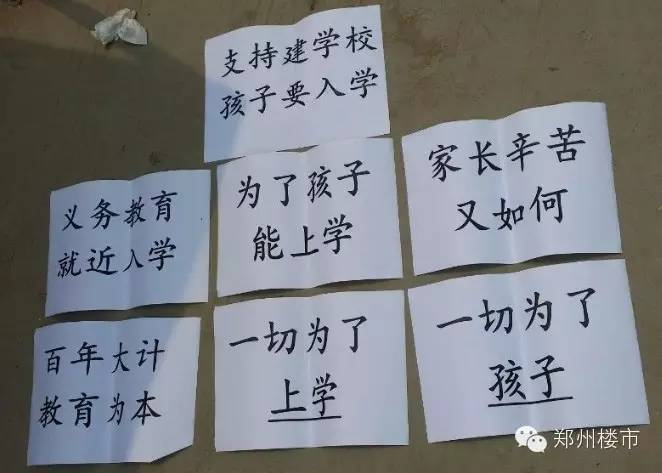 支持建学校
孩子要入学
义务教育
就近入学
为了孩子
能上学
家长辛苦
又如何
百年大计
教育为本
一切为了
上学
一切为了
孩子
郑州楼市